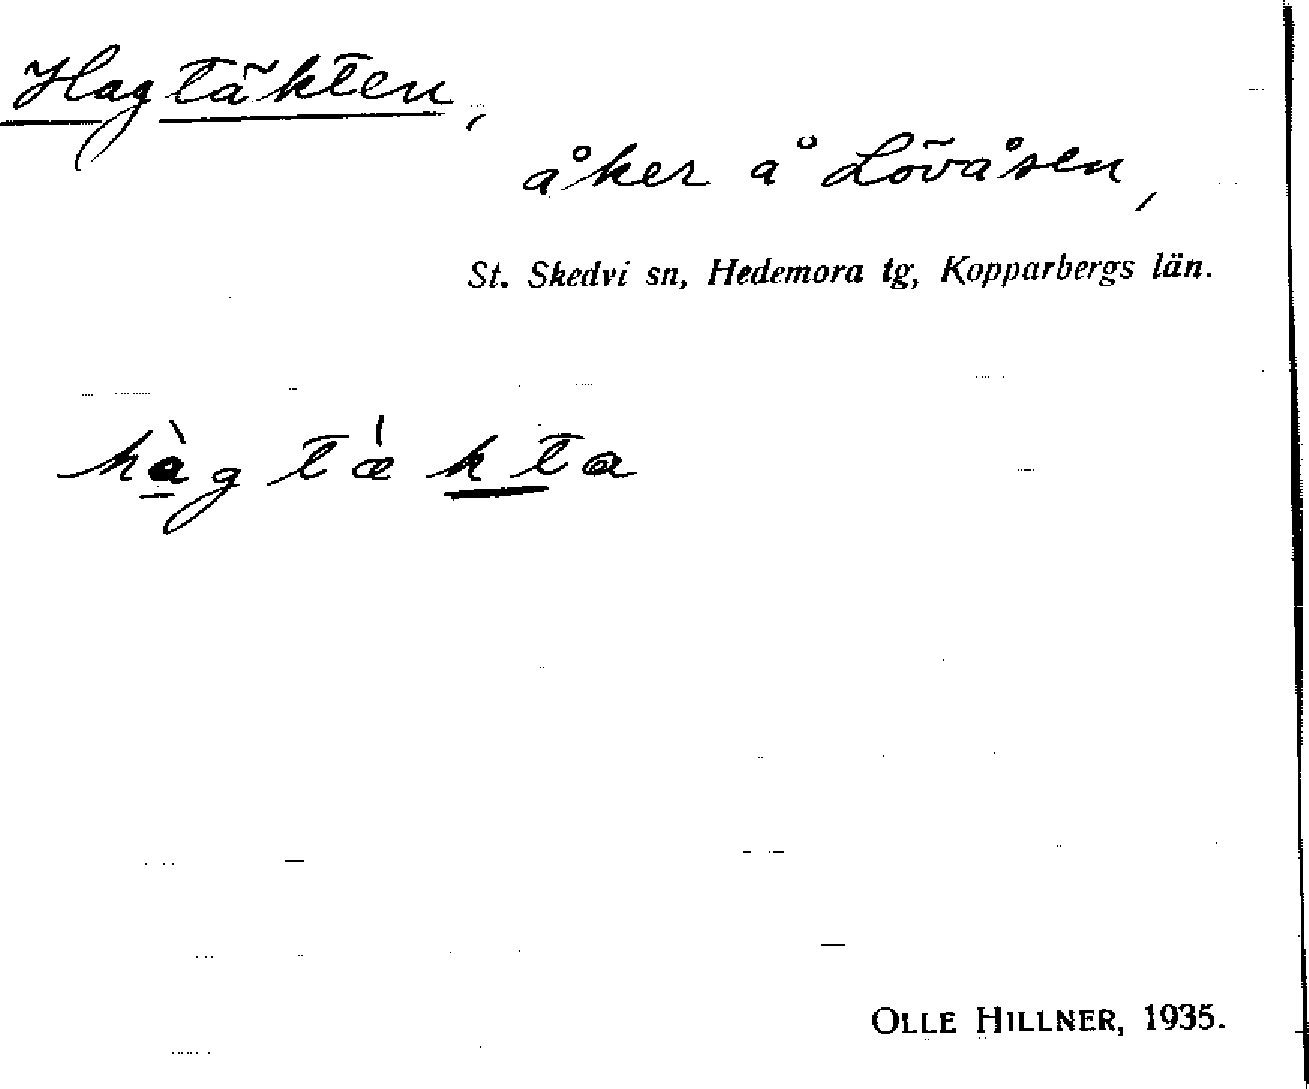 Hagtäkten,
åker å Lövåsen,
St. Skedvi sn, Hedemora tg, Kopparbergs län.
hàg tǽkta
OLLE HILLNER, 1935.